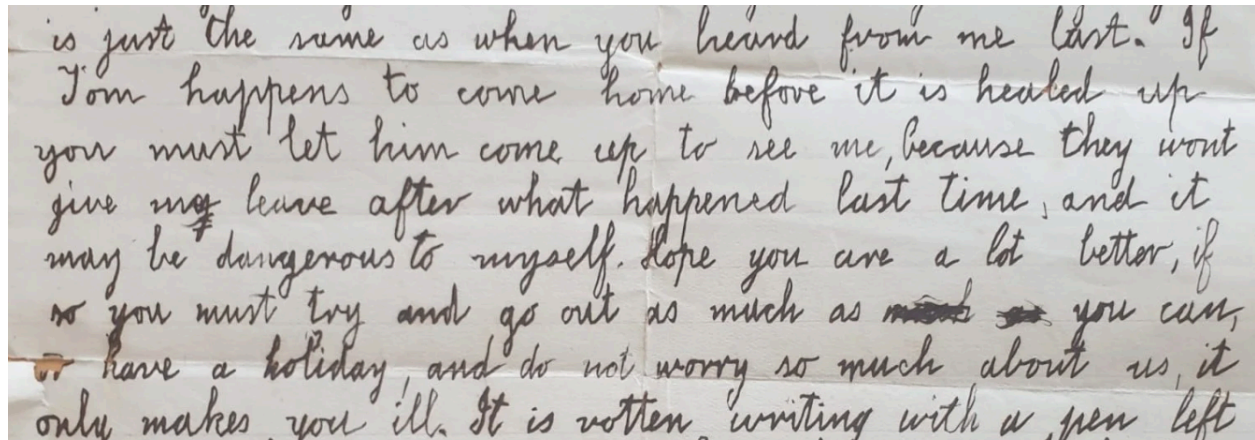 is just the same as when you heard from me last. If
Tom happens to come home before it is healed up
you must let him come up to see me, because they wont
give me leave after what happened last time, and it
may be dangerous to myself. Hope you are a lot better, if
so you must try and go out as much as you can,
or have a holiday, and do not worry so much about us, it
only makes you ill. It is rotten writing with a pen left